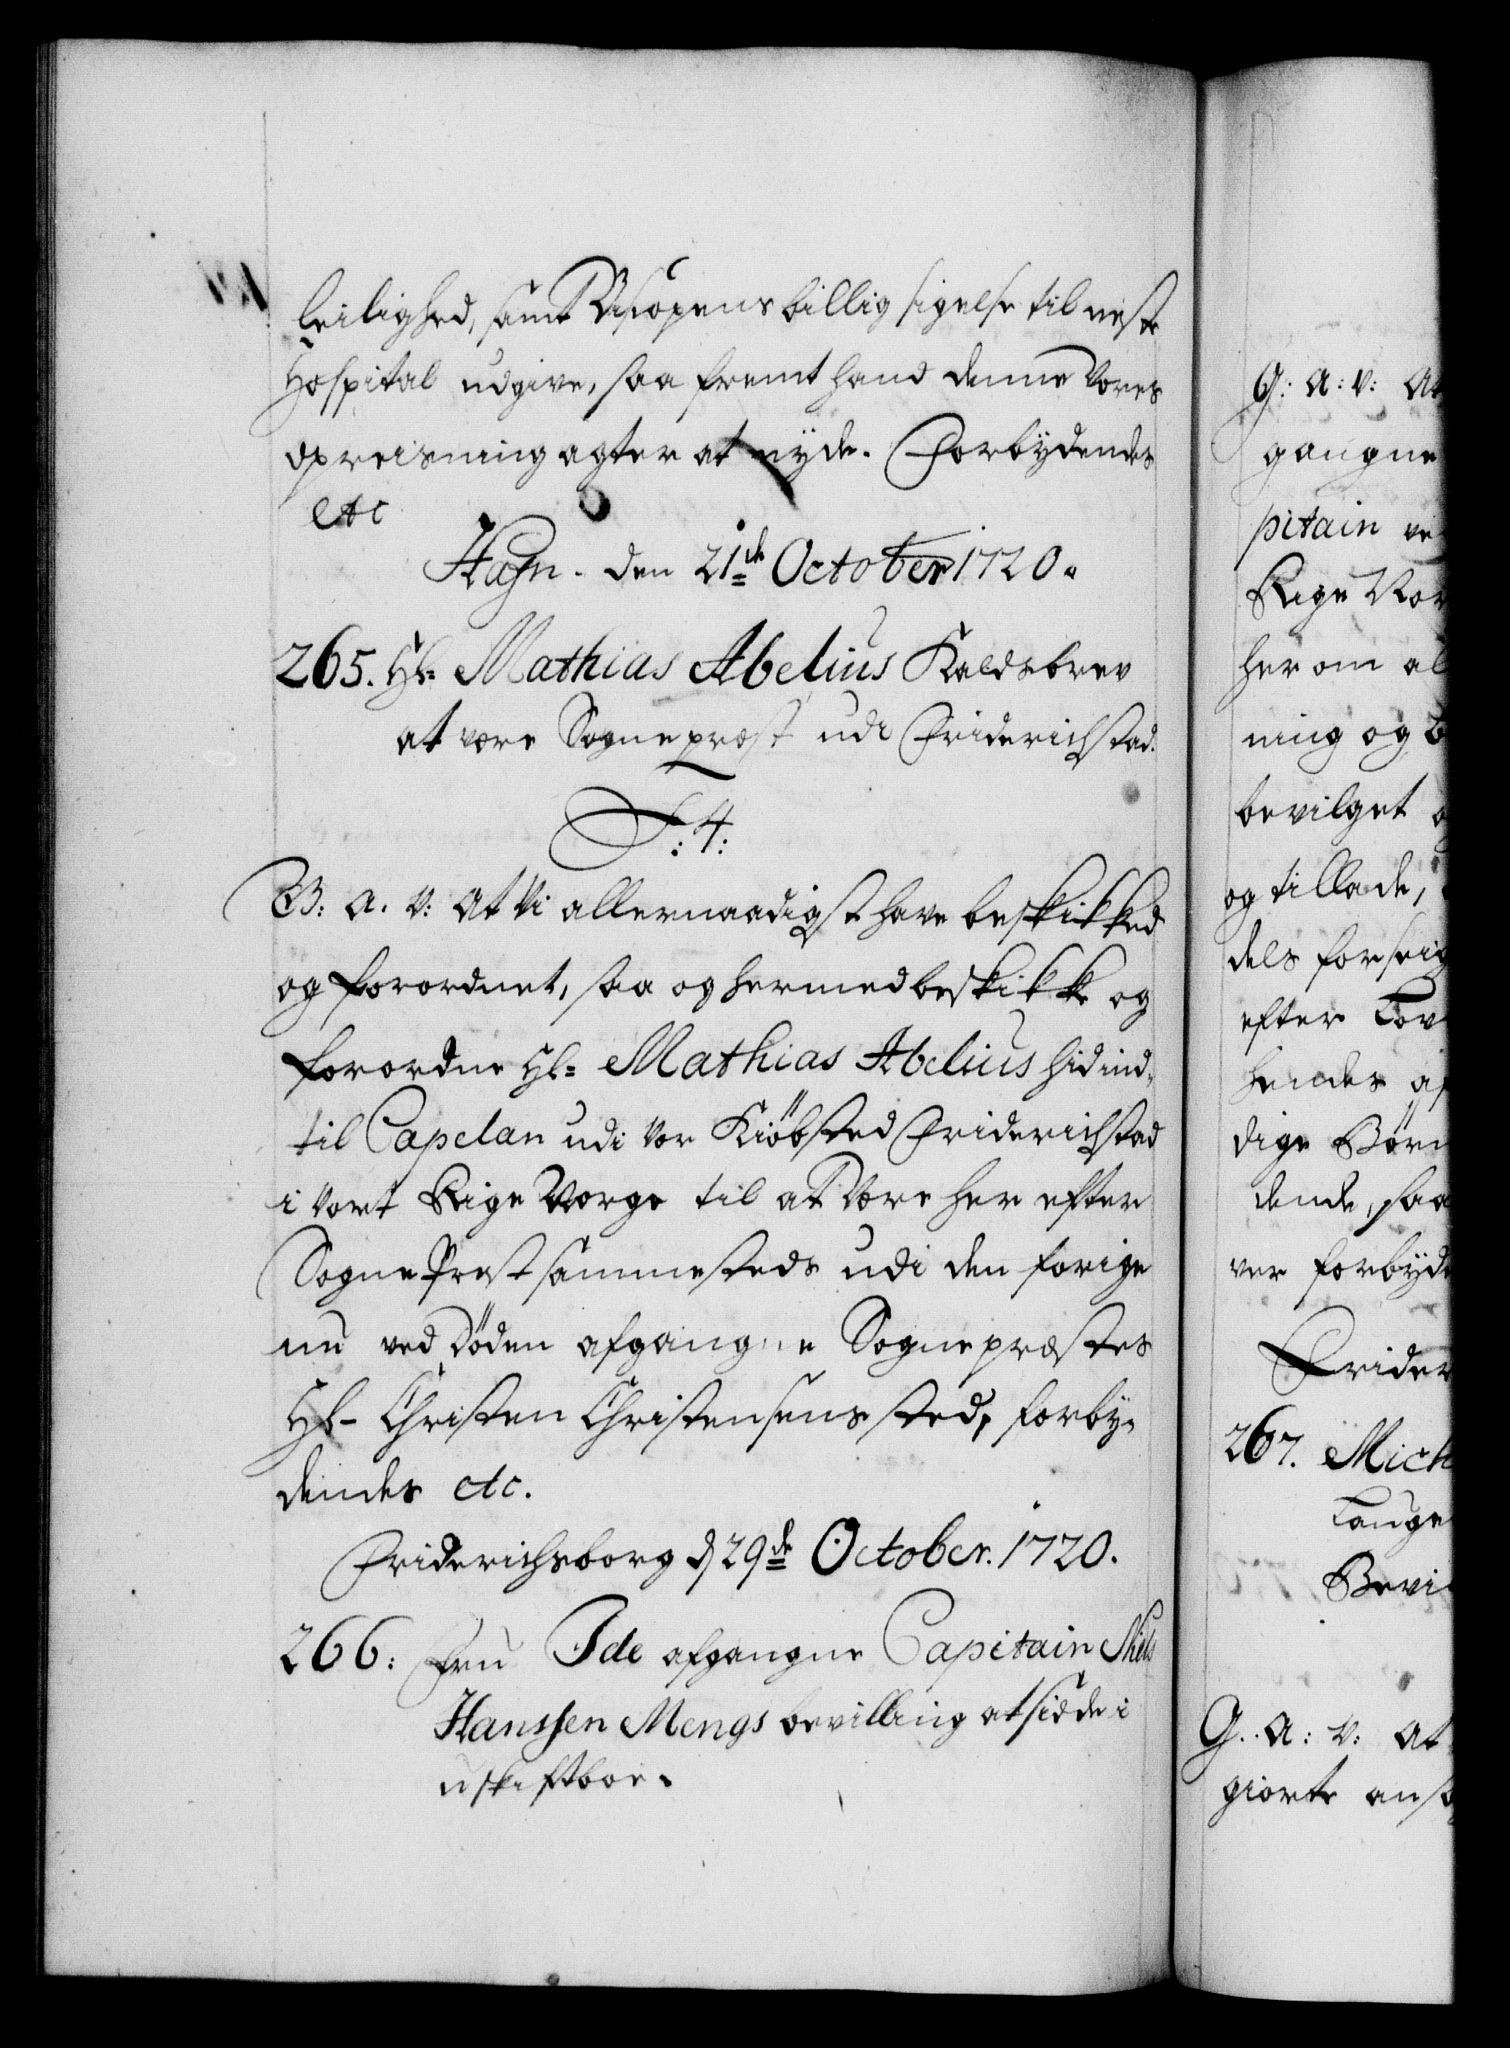 leilighed, samt Biscopens billig sigelse til neste
Hospital udgive, saa fremt hand denne Vores
opreisning agter at nyde. Forbydendes
etc
Hafn. den 21de October 1720.
265. Hr. Mathias Abelius Kaldsbrev
at være Sognepræst udi Friderichstad.
F: 4:
G: A. V: At Vi allernaadigst have beskikked
og forordnet, saa og hermed beskikke og
forordne Hr. Mathias Abelius hid ind-
til Capelan udi Vor Kiöbsted Friderichstad
i Vort Rige Norge til at Være her efter
Sogne Prest sammesteds udi den forige
nu ved Döden afgangne Sognepræstes
Hr. Christen Christensens sted, forby-
dendes etc.
Friderichsborg d 29de October. 1720.
266: Fru Ide afgangne Capitain Niels
Hanssen Mengs bevilling at sidde i
uskiftboe.
G: A: V: At
gaugne
pitain ve
Rige Nor
her om al
ning og b
bevilget o
og tillade,
dels forseig
efter Lov
hendes af
dige Børn
dende, saa
ver forbyde
Frider
267. Mich
Lauge
Bevi
G. A: V: At
giorte ansø